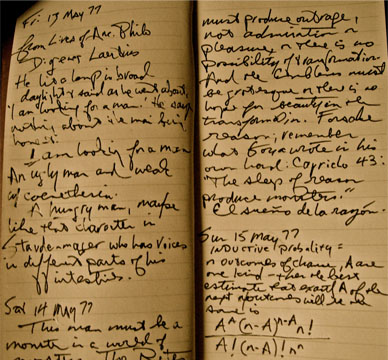 Fri 13 May 77
from Lives of Anc. Philo
Diogenes Laertius
He lit a lamp in broad
daylight & said as he went about,
"I am looking for a man." He says
nothing about the man being
honest.
I am looking for a man
An ugly man and weak
of
A hungry man, maybe
like that character in
who has voices
in different parts of his
intestines.
Sat 14 May 77
This man must be a
monster in a world of
must produce outrage,
not admiration or
pleasure or there is no
possibility of transformation.
And the must
be grotesque or there is no
hope for beauty in the
transform'n. Forsake
reason; remember
what Goya wrote in his
own hand: Capricho 43:
"The sleep of reason
produce monsters."
El sueño de la razón.
Sun 15 May 77
INDUCTIVE probality =
n outcomes of chance, A are
one kind – then the best
estimate that exact A of the
next n outcomes will be the
same is
A^A (n-A)^n-A n!
A! (n-A)! n^n